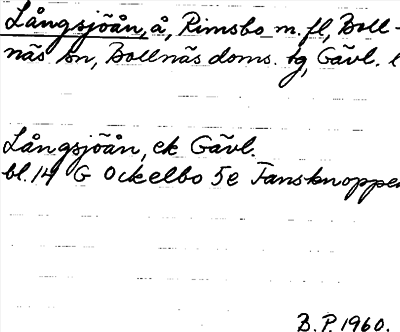 Långsjöån, å, Rimsbo m. fl., Boll-
näs sn, Bollnäs doms. tg, Gävl. l
Långsjöån, ek Gävl.
bl. 14 G Ockelbo 5e Fansknoppen
B. P. 1960.